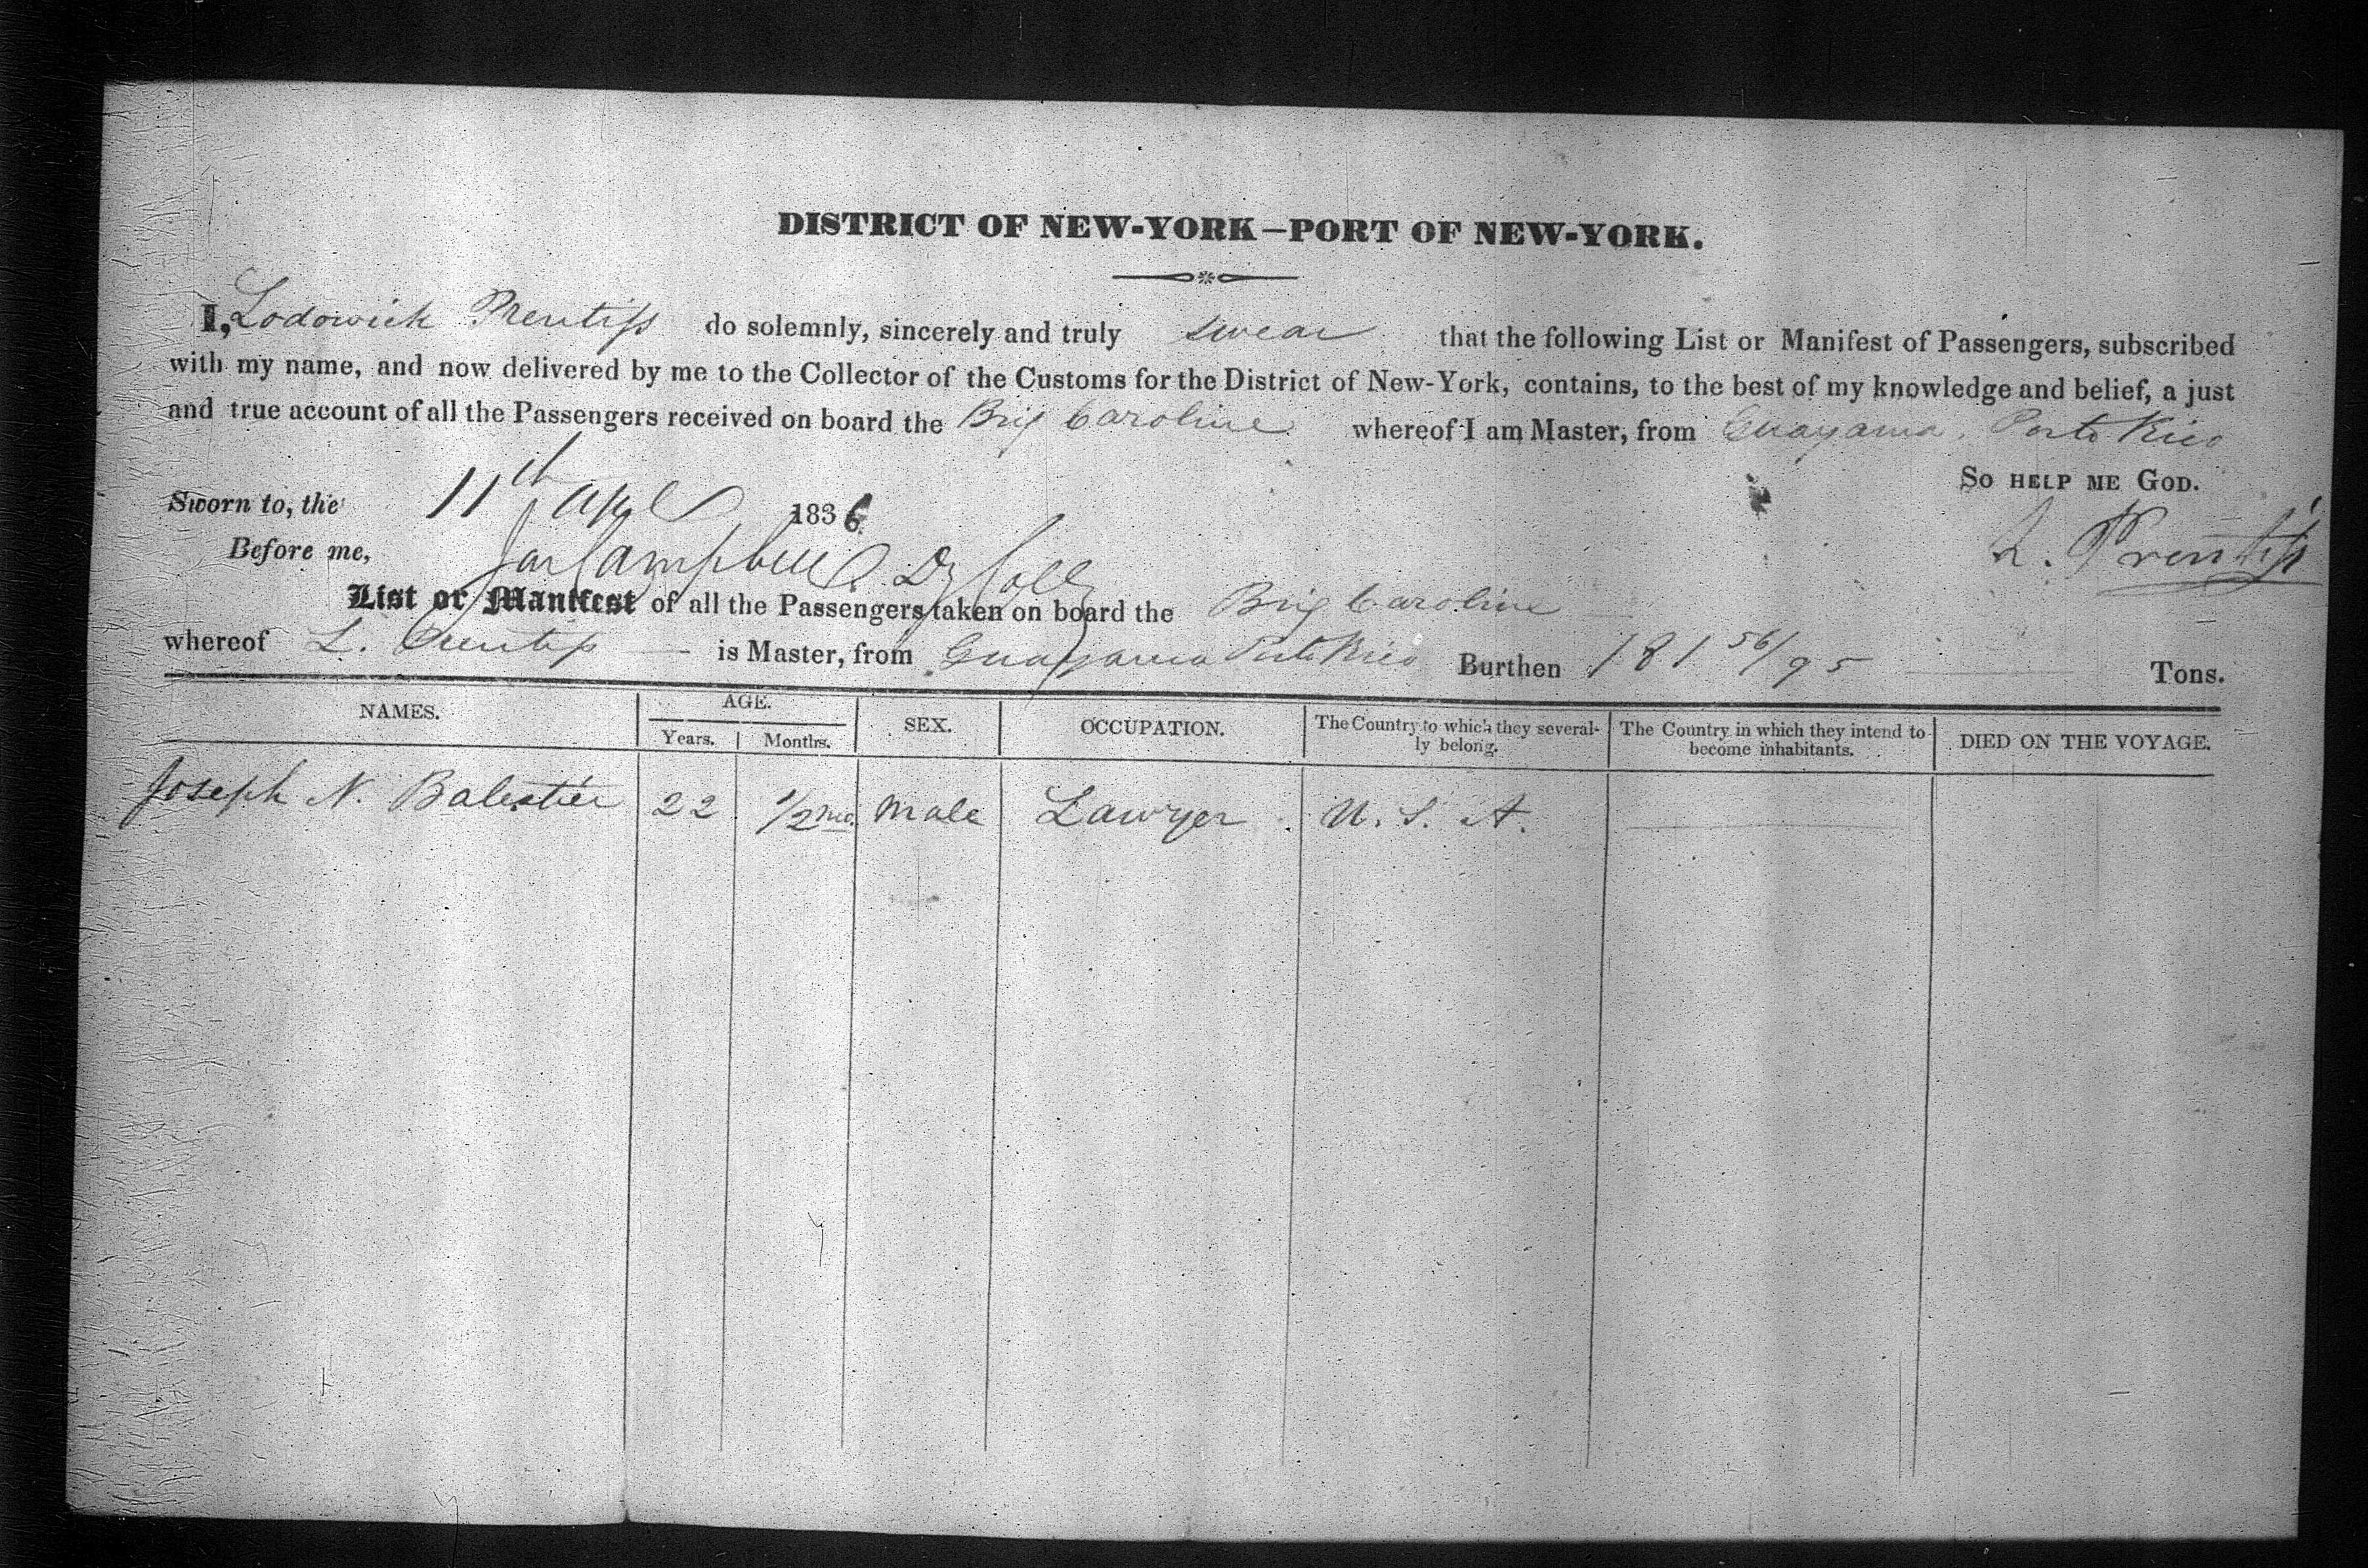 DISTRICT OF NEW-YORK—PORT OF NEW-YORK.
I, Lodowick Prentiss do solemnly, sincerely and truly swear that the following List or Manifest of Passengers, subscribed
with my name, and now delivered by me to the Collector of the Customs for the District of New-York, contains, to the best of my knowledge and belief, a just
and true account of all the Passengers received on board the Brig Caroline whereof I am Master, from Guayama, Porto Rico
So HELP ME GOD.
Sworn to, the 11th Apl 1836
L. Prentiss
Before me, Jas Campbell Dy Coll
List or Manifest of all the Passengers taken on board the Brig Caroline
whereof L. Prentiss is Master, from Guayama Porto Rico Burthen 181 56/95 Tons.
NAMES. AGE. Years. Months. SEX. OCCUPATION. The Country to which they severally belong. The Country in which they intend to become inhabitants. DIED ON THE VOYAGE.
Joseph N. Balestier 22 1/2 mo. Male Lawyer U. S. A.